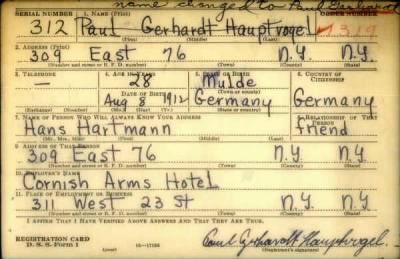 name changed to Paul Gerhardt
SERIAL NUMBER 1. NAME (Print) ORDER NUMBER
312 Paul Gerhardt Hauptvogel 1319
(First) (Middle) (Last)
2. ADDRESS (Print)
309 East 76 N.Y. N.Y.
(Number and street or R. F. D. number) (Town) (County) (State)
3. TELEPHONE 4. AGE IN YEARS 5. PLACE OF BIRTH 6. COUNTRY OF CITIZENSHIP
— 28 Mulde
DATE OF BIRTH (Town or county)
Aug 8 1912 Germany Germany
(Exchange) (Number) (Mo.) (Day) (Yr.) (State or country)
7. NAME OF PERSON WHO WILL ALWAYS KNOW YOUR ADDRESS 8. RELATIONSHIP OF THAT PERSON
Hans Hartmann friend
(Mr., Mrs., Miss) (First) (Middle) (Last)
9. ADDRESS OF THAT PERSON
309 East 76 N.Y. N.Y.
(Number and street or R. F. D. number) (Town) (County) (State)
10. EMPLOYER'S NAME
Cornish Arms Hotel
11. PLACE OF EMPLOYMENT OR BUSINESS
311 West 23 St N.Y. N.Y.
(Number and street or R. F. D. number) (Town) (County) (State)
I AFFIRM THAT I HAVE VERIFIED ABOVE ANSWERS AND THAT THEY ARE TRUE.
REGISTRATION CARD
D. S. S. Form 1 16—17105 Paul Gerhardt Hauptvogel.
(Registrant's signature)